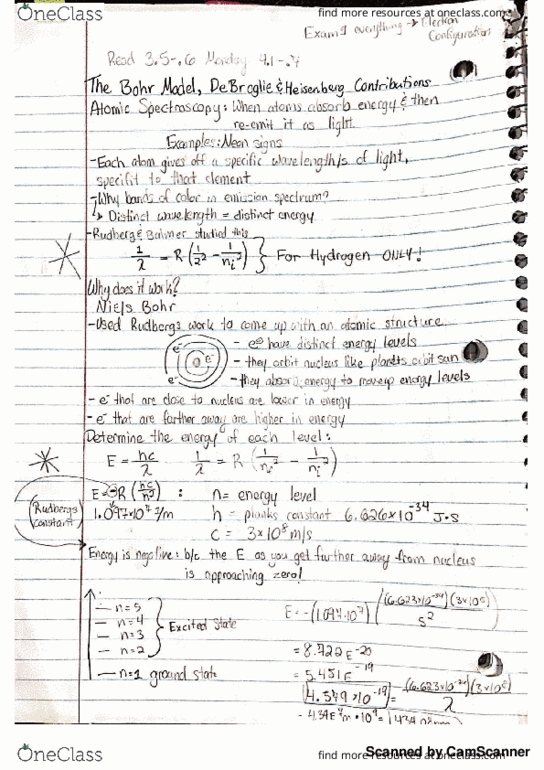 OneClass
find more resources at oneclass.com
Exam 1 everything → Election
Configuration
Read 3.5-.6 Monday 4.1-.4
The Bohr Model, DeBroglie & Heisenberg Contributions
Atomic Spectroscopy: When atoms absorb energy & then
re-emit it as light.
Examples: Neon signs
-Each atom gives off a specific wavelength/s of light,
specifit to that element
-Why bands of color in emission spectrum?
↳ Distinct wavelength = distinct energy
-Rudberg & Balmer studied this
1/λ = R(1/2² - 1/ni²) } For Hydrogen ONLY!
Why does it work?
Niels Bohr
-Used Rudbergs work to come up with an atomic structure.
e⁻ e⁻ e⁻
- e⁻ have distinct energy levels
- they orbit nucleus like planets orbit sun
- they absorb energy to move up energy levels
- e⁻ that are close to nucleus are lower in energy
- e⁻ that are farther away are higher in energy
Determine the energy of each level:
E = hc/λ 1/λ = R(1/ni² - 1/ni²)
E = -R(hc/n²) : n = energy level
Rudbergs constant
1.097×10⁷ 1/m h = planks constant 6.626×10⁻³⁴ J·s
c = 3×10⁸ m/s
Energy is negative: b/c the E as you get further away from nucleus
is approaching zero!
n=5
n=4
n=3
n=2
Excited State
n=1 ground state
E = -(1.097·10⁷)((6.623×10⁻³⁴)(3×10⁸)/5²)
= 8.722E⁻²⁰
= 5.451E⁻¹⁹
4.579×10⁻¹⁹ = (6.623×10⁻³⁴)(3×10⁸)/λ
OneClass
find more resources at oneclass.com
Scanned by CamScanner